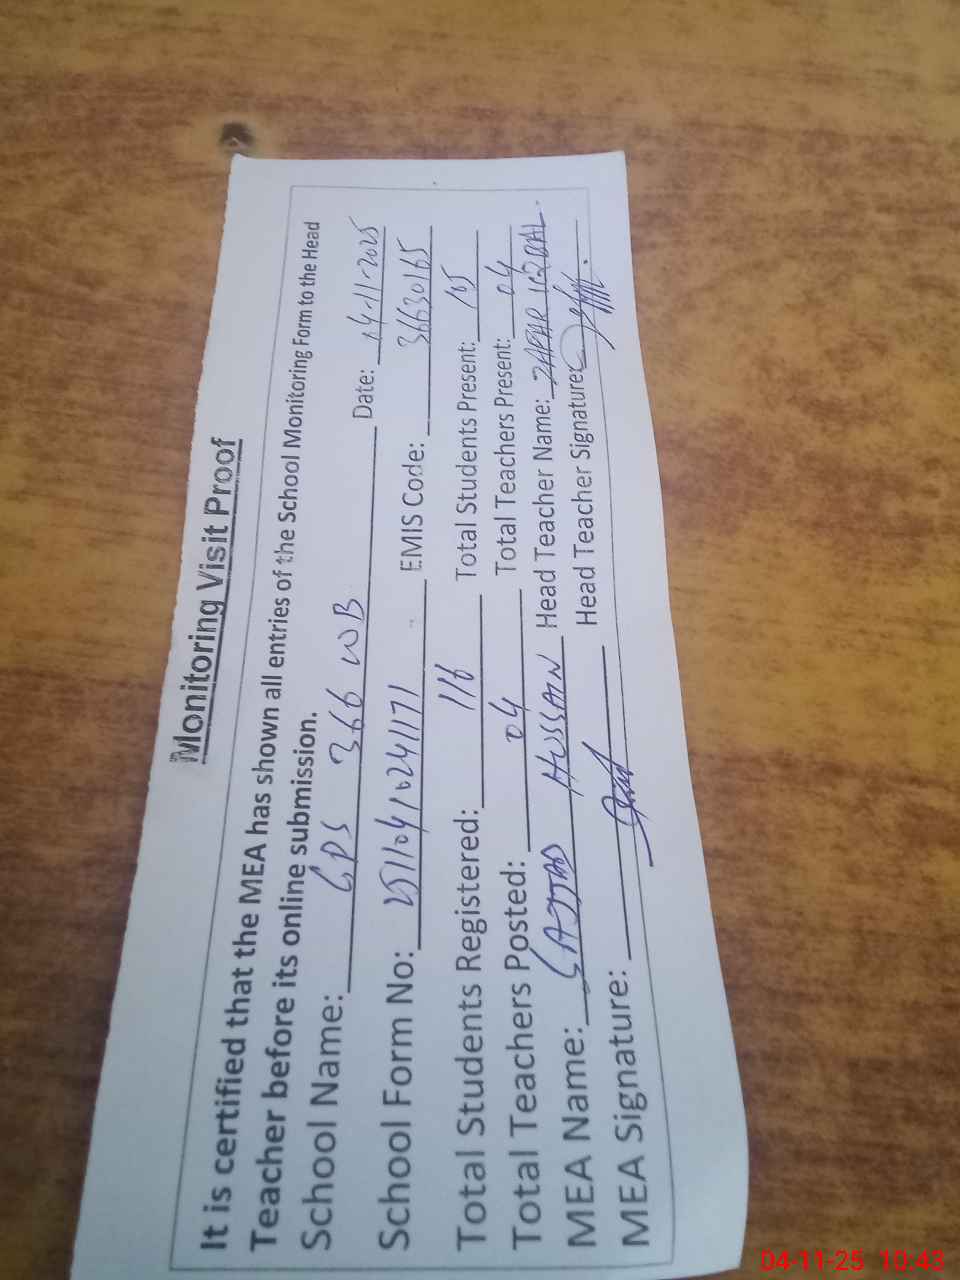 Monitoring Visit Proof
It is certified that the MEA has shown all entries of the School Monitoring Form to the Head
Teacher before its online submission.
School Name: GPS 366 WB Date: 04-11-2025
School Form No: 251104/0241171 EMIS Code: 36630165
Total Students Registered: 116 Total Students Present: 105
Total Teachers Posted: 04 Total Teachers Present: 04
MEA Name: SAJJAD HUSSAIN Head Teacher Name: ZAFAR IQBAL.
MEA Signature: Head Teacher Signature:
04-11-25 10:43